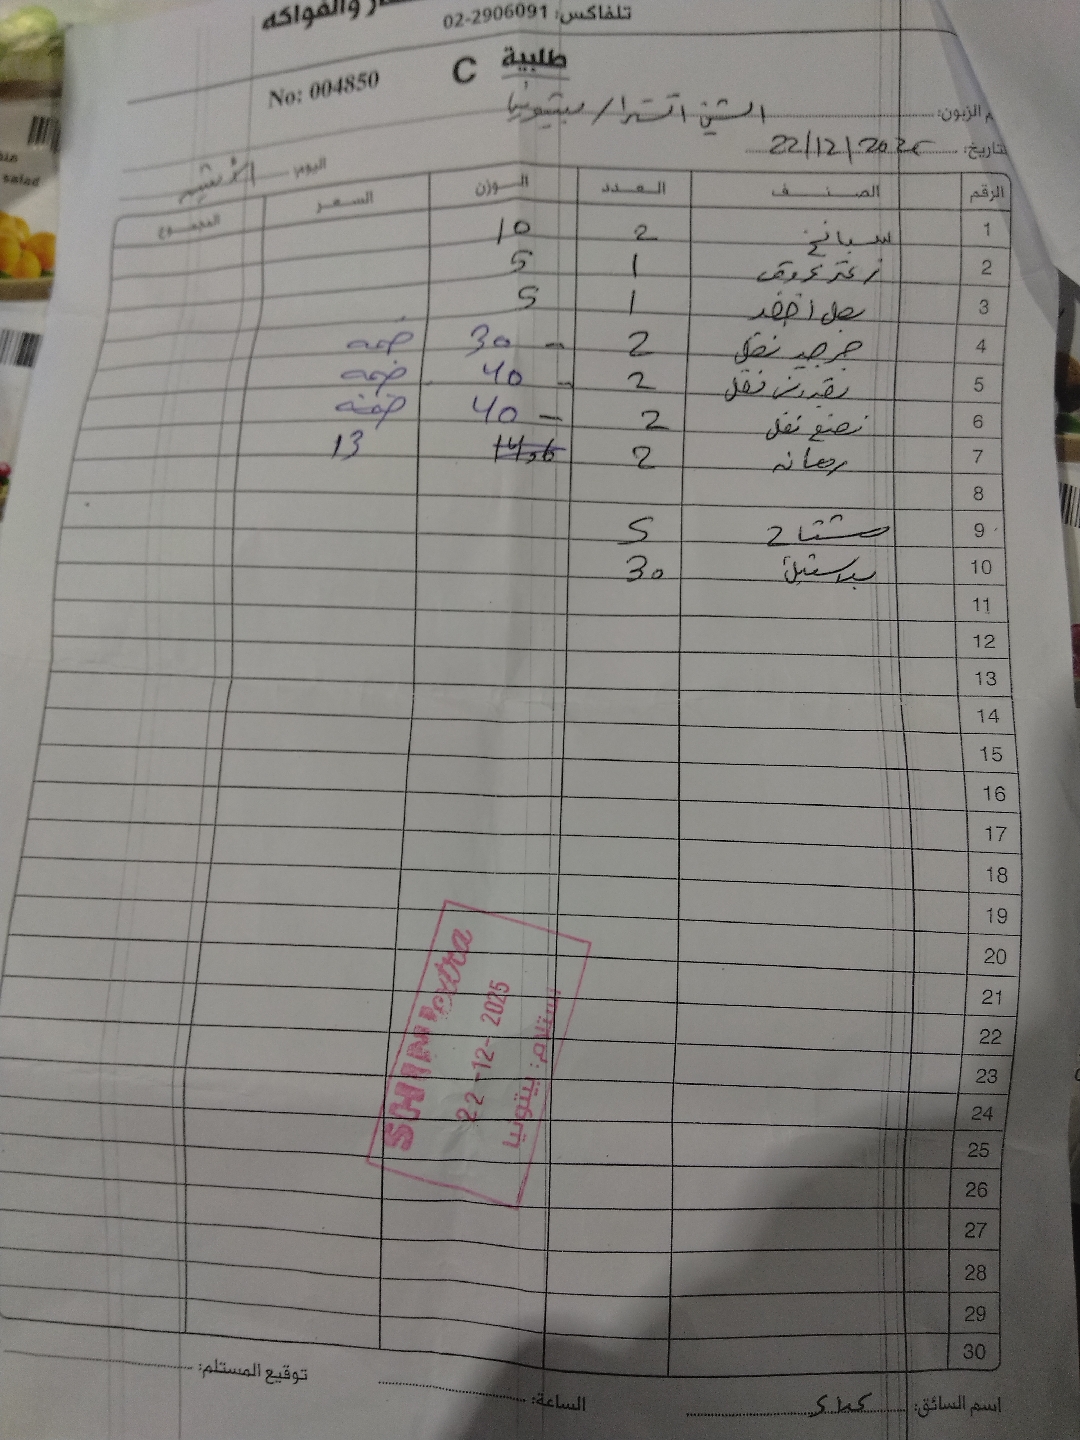 والفواكه
تلفاكس: 02-2906091
طلبية C
No: 004850
الزبون: الشني اكسترا / بيتونيا
تاريخ: 22/12/2025
اليوم الاثنين
الرقم الصنف العدد الوزن السعر المجموع
1 سبانخ 2 10
2 زعتر عروق 1 5
3 بصل اخضر 1 5
4 جرجير نقل 2 - 30 ضمه
5 بقدونس نقل 2 - 40 ضمه
6 نعنع نقل 2 - 40 ضمه
7 رمانه 2 14,6 13
8
9 مشتاح 5
10 بلاستيك 30
11
12
13
14
15
16
17
18
19
20
21
22
23
24
25
26
27
28
29
30
SHINI extra
22-12-2025
استلام: بيتونيا
اسم السائق:
الساعة:
توقيع المستلم: